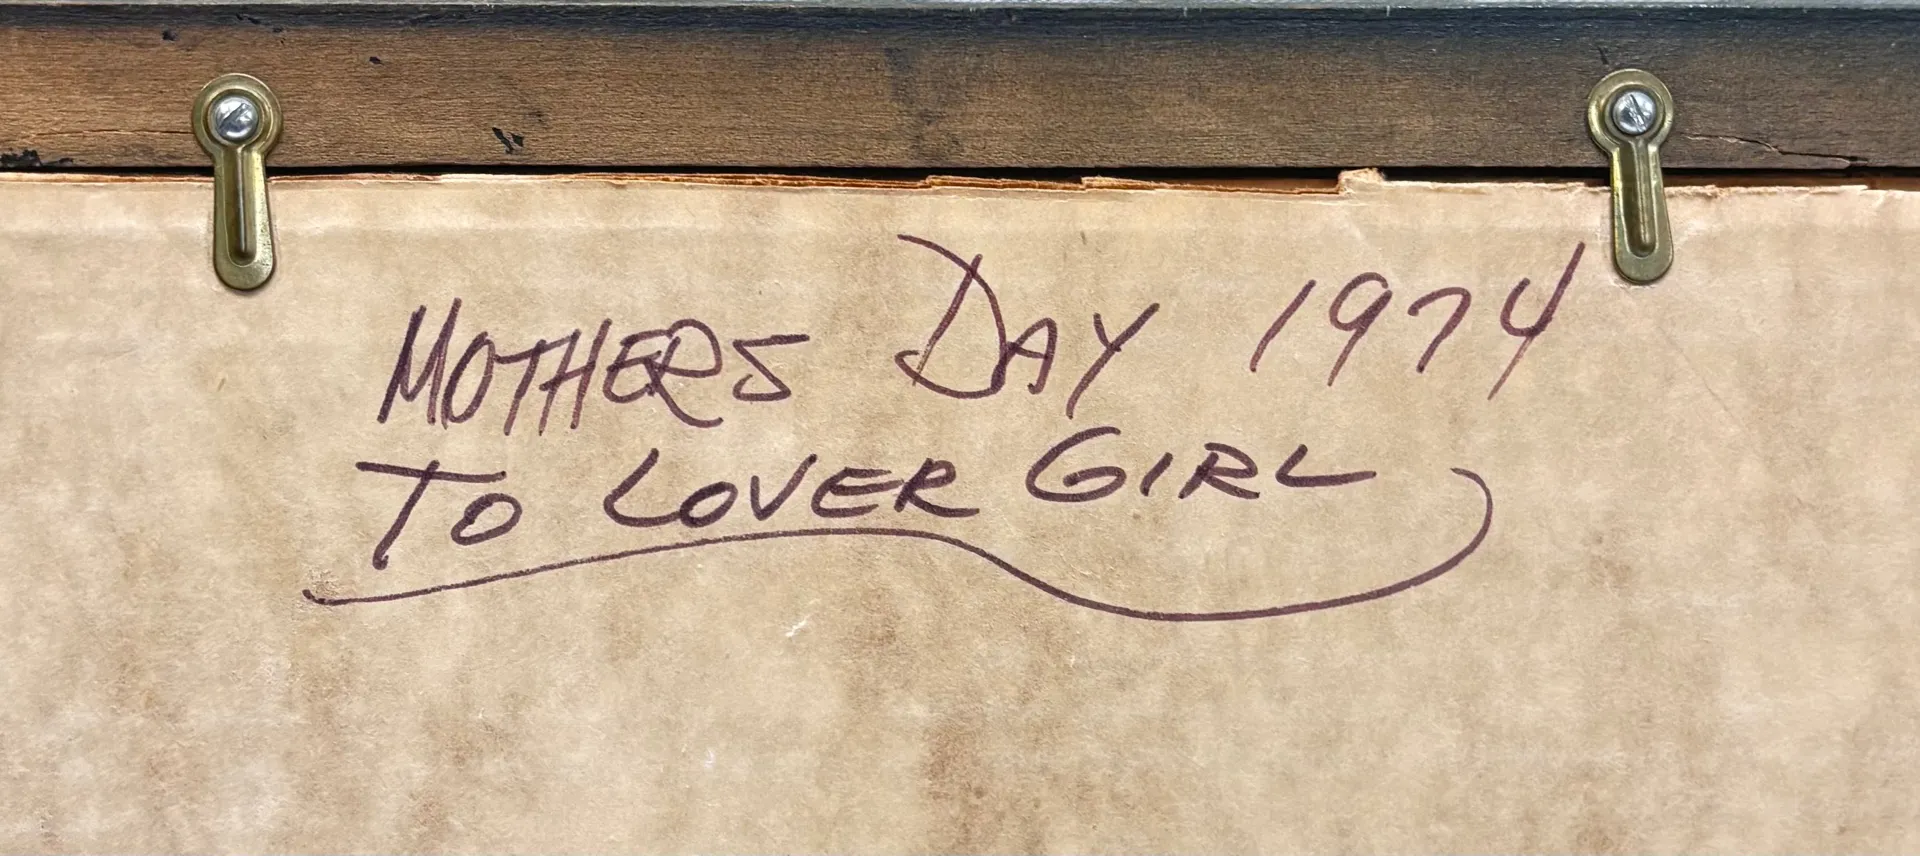 MOTHERS DAY 1974
TO LOVER GIRL